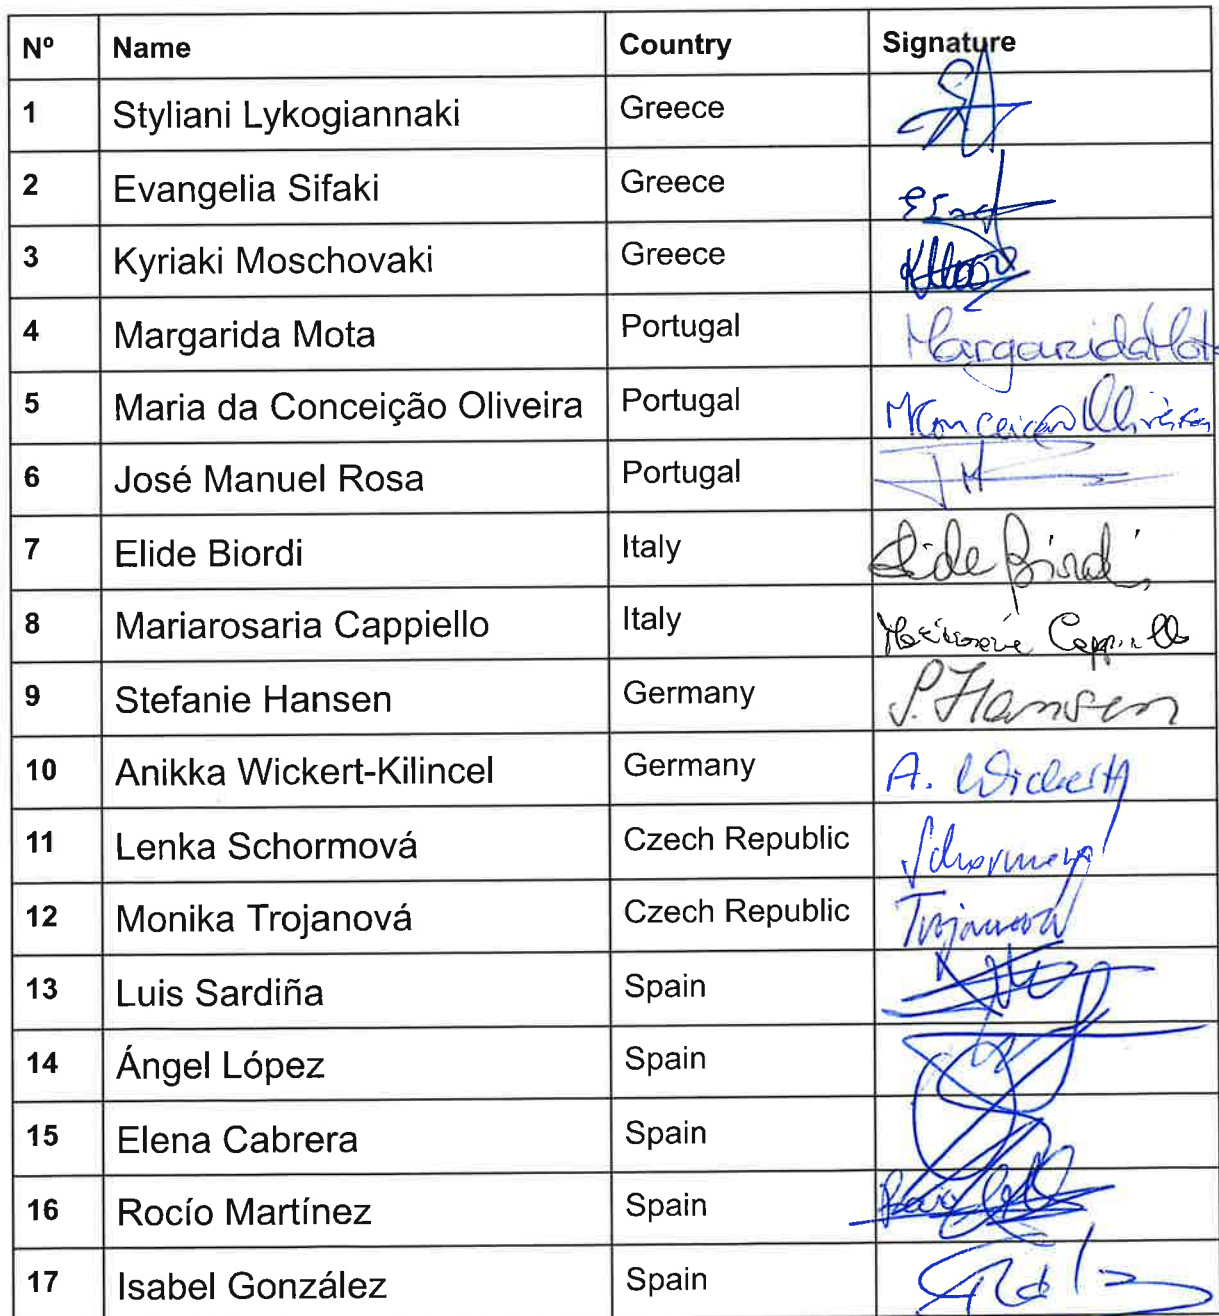 Nº Name Country Signature
1 Styliani Lykogiannaki Greece
2 Evangelia Sifaki Greece
3 Kyriaki Moschovaki Greece
4 Margarida Mota Portugal Margarida Mota
5 Maria da Conceição Oliveira Portugal MConceição Oliveira
6 José Manuel Rosa Portugal
7 Elide Biordi Italy Elide Biordi
8 Mariarosaria Cappiello Italy Mariarosaria Cappiello
9 Stefanie Hansen Germany S. Hansen
10 Anikka Wickert-Kilincel Germany A. Wickert
11 Lenka Schormová Czech Republic Schormová
12 Monika Trojanová Czech Republic Trojanová
13 Luis Sardiña Spain
14 Ángel López Spain
15 Elena Cabrera Spain
16 Rocío Martínez Spain
17 Isabel González Spain